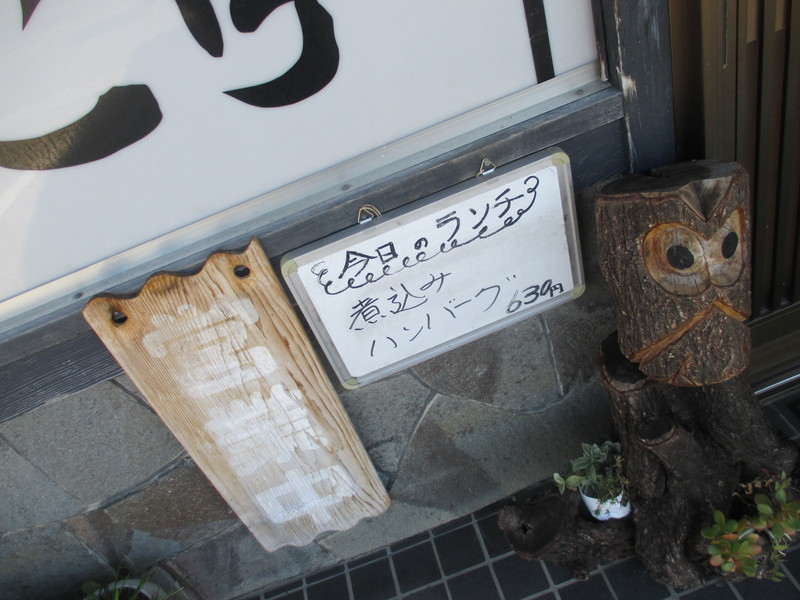 今日のランチ
煮込み
ハンバーグ 630円
営業中